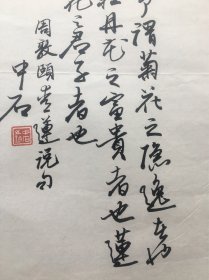 予谓菊花之隐逸者也
牡丹花之富貴者也蓮
花之君子者也
周敦颐爱莲说句
中石